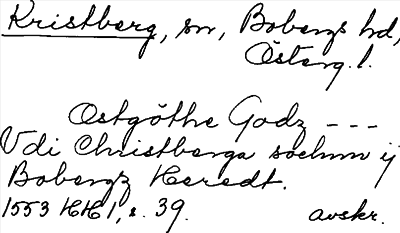 Kristberg, sn, Bobergs hd,
Österg. l.
Ostgöthe Godz ---
Vdi Christberga sochnn ij
Bobergz Heredt.
1553 HH 1, s. 39. avskr.